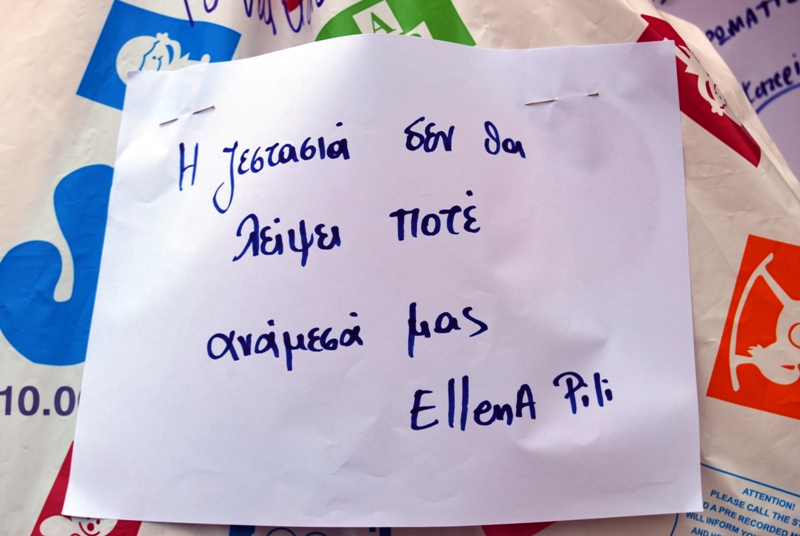 Η ζεστασιά δεν θα
λείψει ποτέ
ανάμεσά μας
EllenA Pili
10.0
ATTENTION!
PLEASE CALL THE
A PRE RECORDED
WILL INFORM